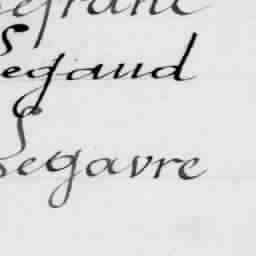 Segrant
Segaud
Segavre